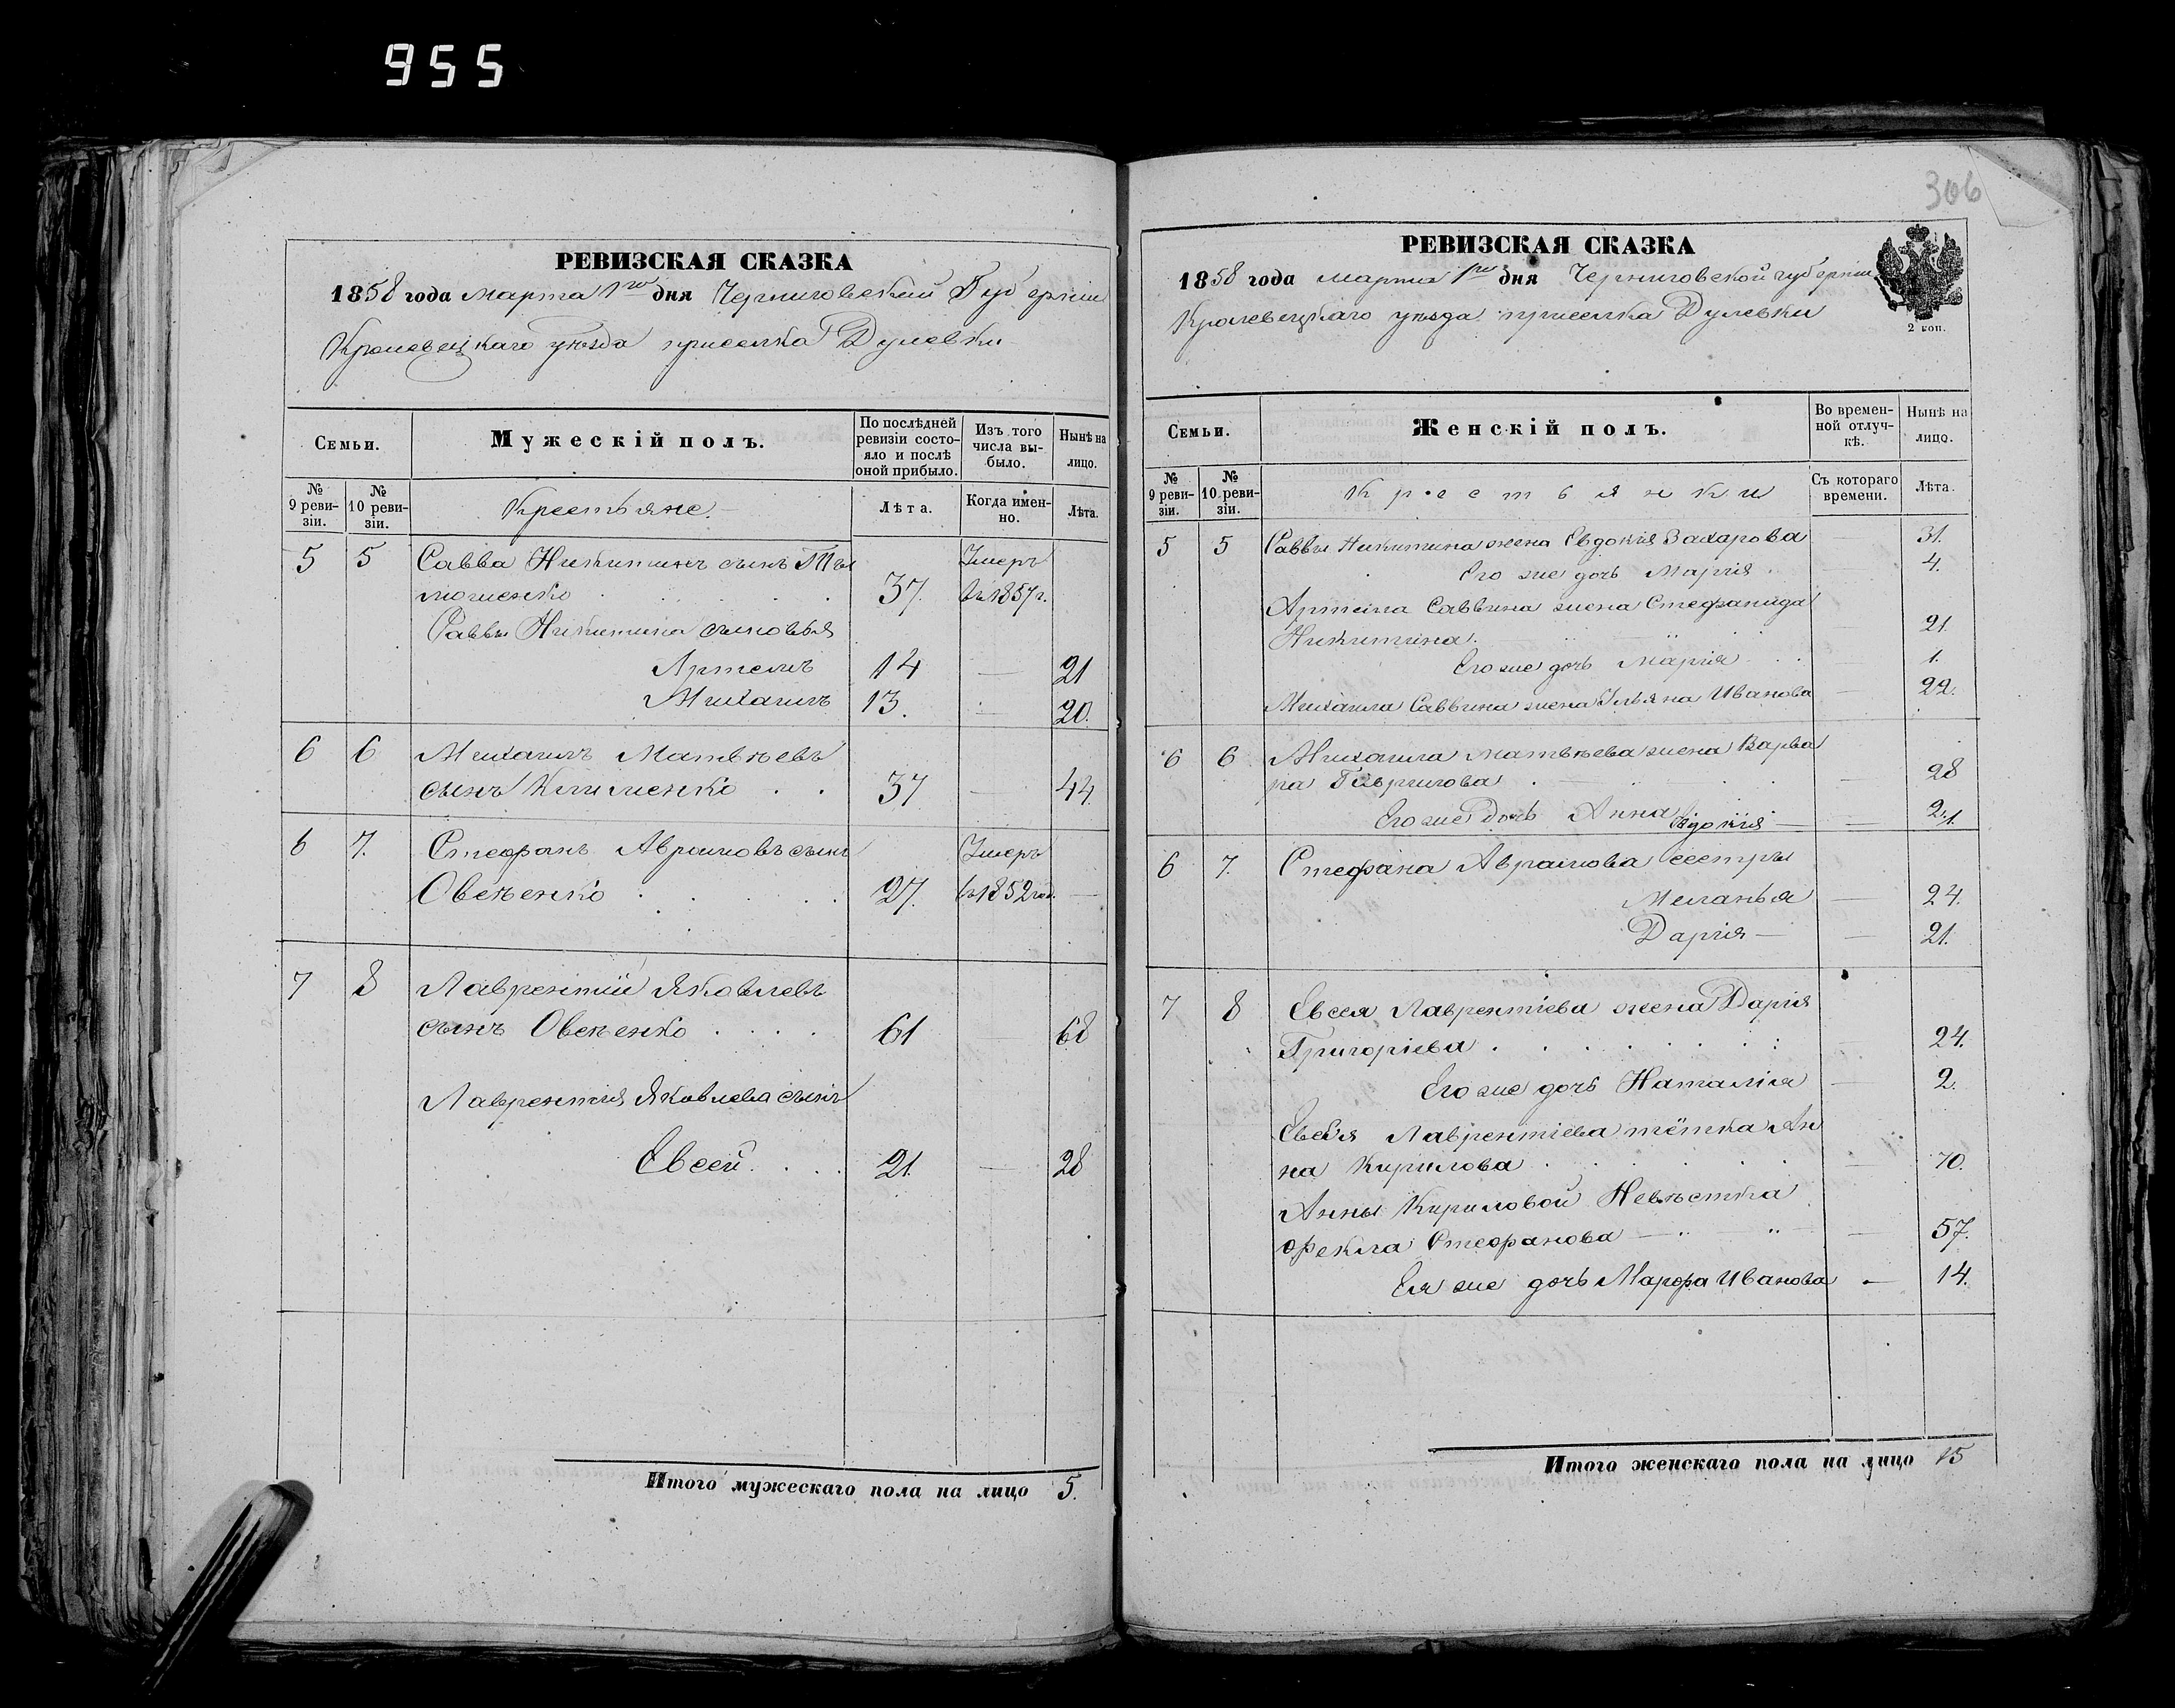 955
306
РЕВИЗСКАЯ СКАЗКА
1858 года Марта 1го дня Черниговской Губернии
Кролевецкаго уѣзда приселка Дулевки
Семьи.
Мужескій полъ.
По послѣдней ревизіи состояло и послѣ оной прибыло.
Изъ того числа выбыло.
Нынѣ на лицо.
№ 9 ревизіи.
№ 10 ревизіи.
Крестьяне.
Лѣта.
Когда именно.
Лѣта.
5 5 Савва Никитинъ сынъ
37. Умеръ въ 1857 г.
Саввы Никитина сыновья
Артемъ 14 — 21
Михаилъ 13. — 20.
6 6 Михаилъ Матвѣевъ
сынъ Клименко . . 37 — 44.
6 7. Стефанъ Аврамовъ сынъ Умеръ
Овсѣенко . . . . 27. въ 1852 год. —
7 8 Лаврентій Яковлевъ
сынъ Овсѣенко . . . . 61 — 68
Лаврентія Яковлева сынъ
Евсей . . . 21. — 28
Итого мужескаго пола на лицо 5.
РЕВИЗСКАЯ СКАЗКА
1858 года марта 1го дня Черниговской губерніи
Кролевецкаго уѣзда приселка Дулевки
2 коп.
Семьи.
Женскій полъ.
Во временной отлучкѣ.
Нынѣ на лицо.
№ 9 ревизіи.
№ 10 ревизіи.
Крестьянки
Съ котораго времени.
Лѣта.
5 5 Саввы Никитина жена Евдокія Захарова — 31.
Его же дочь Марія . — 4.
Артема Саввина жена Стефанида
Никитина. — 21.
Его же дочь Марія . . — 1.
Михаила Саввина жена Ульяна Иванова — 22.
6 6 Михаила Матвѣева жена Варва
ра Гаврилова . — 28
Его же Дочь Анна Евдокія — — 2. 1.
6 7. Стефана Аврамова сестры
Меланья — 24.
Дарія — — 21.
7 8 Евсея Лаврентіева жена Дарія
Григоріева . . . . . . . — 24.
Его же дочь Наталія — 2.
Евсея Лаврентіева тётка Ан
на Кирилова . . . . . — 70.
Анны Кириловой Невѣстка
Фекла Стефанова — — 57.
Ея же дочь Марфа Иванова — 14.
Итого женскаго пола на лицо 15